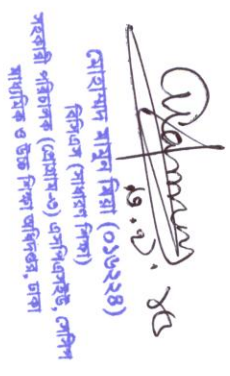 ১৩.২.২৫
মোহাম্মদ মামুন মিয়া (০১৬২২৪)
বিসিএস (সাধারণ শিক্ষা)
সহকারী পরিচালক (প্রোগ্রাম-৩) এসপিএসইউ, সেসিপ
মাধ্যমিক ও উচ্চ শিক্ষা অধিদপ্তর, ঢাকা